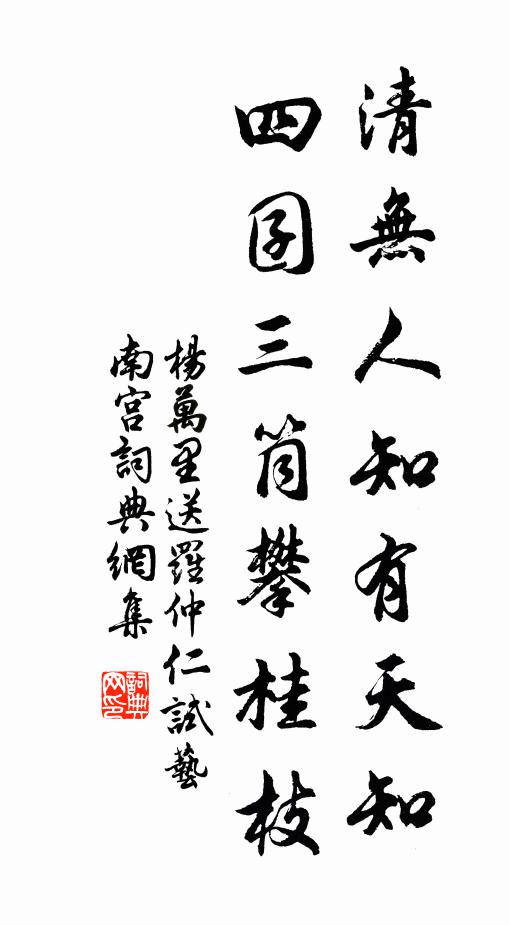 清無人知有天知
四囝三箇攀桂枝
楊萬里送羅仲仁試藝
南宮詞典網集
詞典
网印